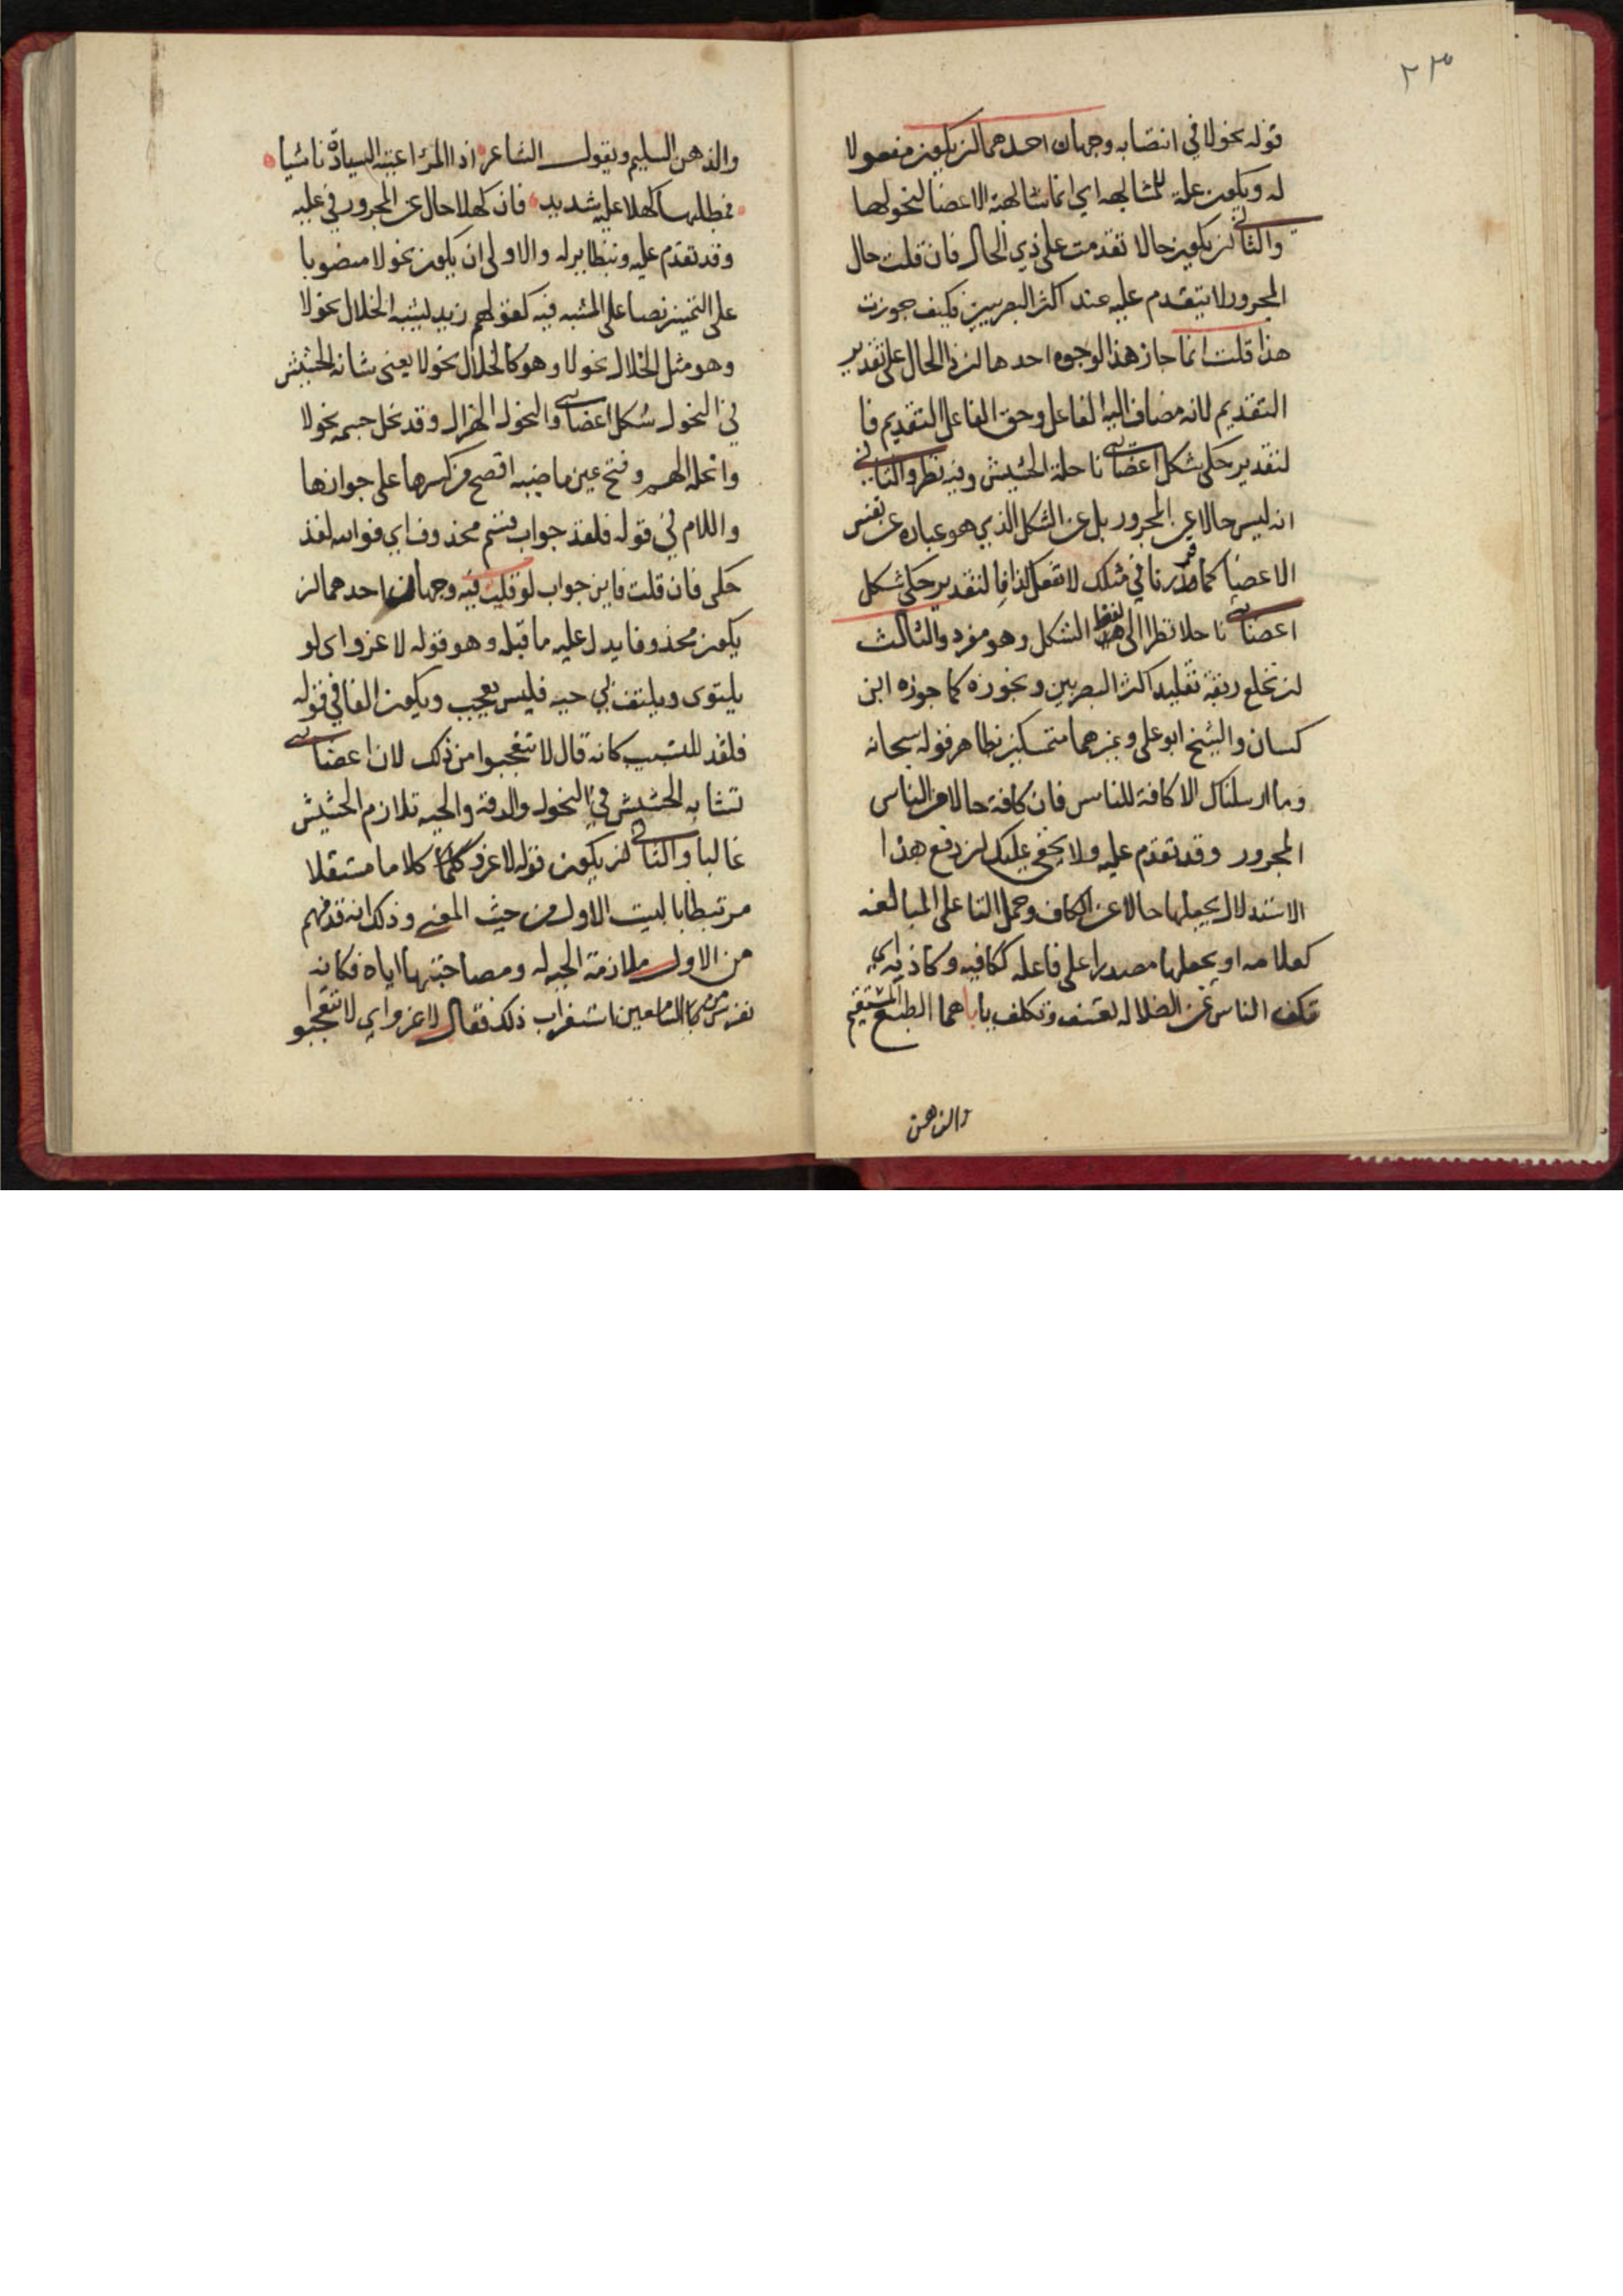 ٢٣
قوله نحولا في انتصابه وجهان احدهما ان يكون مفعولا
له ويكون علة للمشابهة اي انما شابهته الاعضا لنحولها
والثاني ان يكون حالا تقدمت على ذي الحال فان قلت حال
المجرور لا يتقدم عليه عند اكثر البصريين فكيف جوزت
هذا قلت انما جاز هذا لوجوه احدها ان ذا الحال على تقدير
التقديم لانه مضاف اليه الفاعل وحق الفاعل التقديم فا
لتقدير حكى شكل اعضائي ناحلة الحشيش وفيه نظر والثاني
انه ليس حالا عن المجرور بل عن الشكل الذي هو عباره عن نفس
الاعضا كما قدرنا في مثلك لا تفعل كذا فا لتقدير حكى شكل
اعضائي ناحلا نظرا الى لفظ الشكل وهو مفرد والثالث
ان نخلع ربقة تقليد اكثر البصريين ونجوزه كما جوزه ابن
كسان والشيخ ابو على وغيرهما متمسكين بظاهر قوله سبحانه
وما ارسلناك الا كافة للناس فان كافة حالا من الناس
المجرور وقد تقدم عليه ولا يخفى عليك ان دفع هذا
الاستدلال بجعلها حالا عن الكاف وحمل التا على المبالغه
كعلامه او بجعلها مصدرا على فاعله ككافيه وكاذبه اي
تكف الناس عن الضلاله تعسف وتكلف ياباهما الطبع المستقيم
والذهن
والذهن السليم وبقول الشاعر اذا المرء اعيته السيادة ناشيا
فمطلبها كهلا عليه شديد فان كهلا حال عن المجرور في عليه
وقد تقدم عليه وبنظايره والاولى ان يكون نحولا منصوبا
على التمييز نصا على المشبه فيه كقولهم زيد يشبه الخلال نحولا
وهو مثل الخلال نحولا وهو كالخلال نحولا يعنى شابه الحشيش
في النحول شكل اعضائي والنحول الهزال وقد نحل جسمه نحولا
وانحله الهم وفتح عين ماضيه افصح من كسرها على جوازها
واللام في قوله فلقد جواب قسم محذوف اي فوالله لقد
حكى فان قلت فاين جواب لو قلت فيه وجهان احدهما ان
يكون محذوفا يدل عليه ما قبله وهو قوله لا غزو اى لو
يلتوى ويلتف بي حيه فليس بعجيب ويكون الفا في قوله
فلقد للسبب كانه قال لا تتعجبوا من ذلك لان اعضائي
تشابه الحشيش في النحول والدقة والحيه تلازم الحشيش
غالبا والثاني ان يكون قوله لا غزو كلاما مستقلا
مرتبطا بالبيت الاول من حيث المعنى وذلك انه قد فهم
من الاول ملازمة الحيه له ومصاحبتها اياه فكانه
تفرس من السامعين استغراب ذلك فقال لا غزو اي لا تتعجبوا